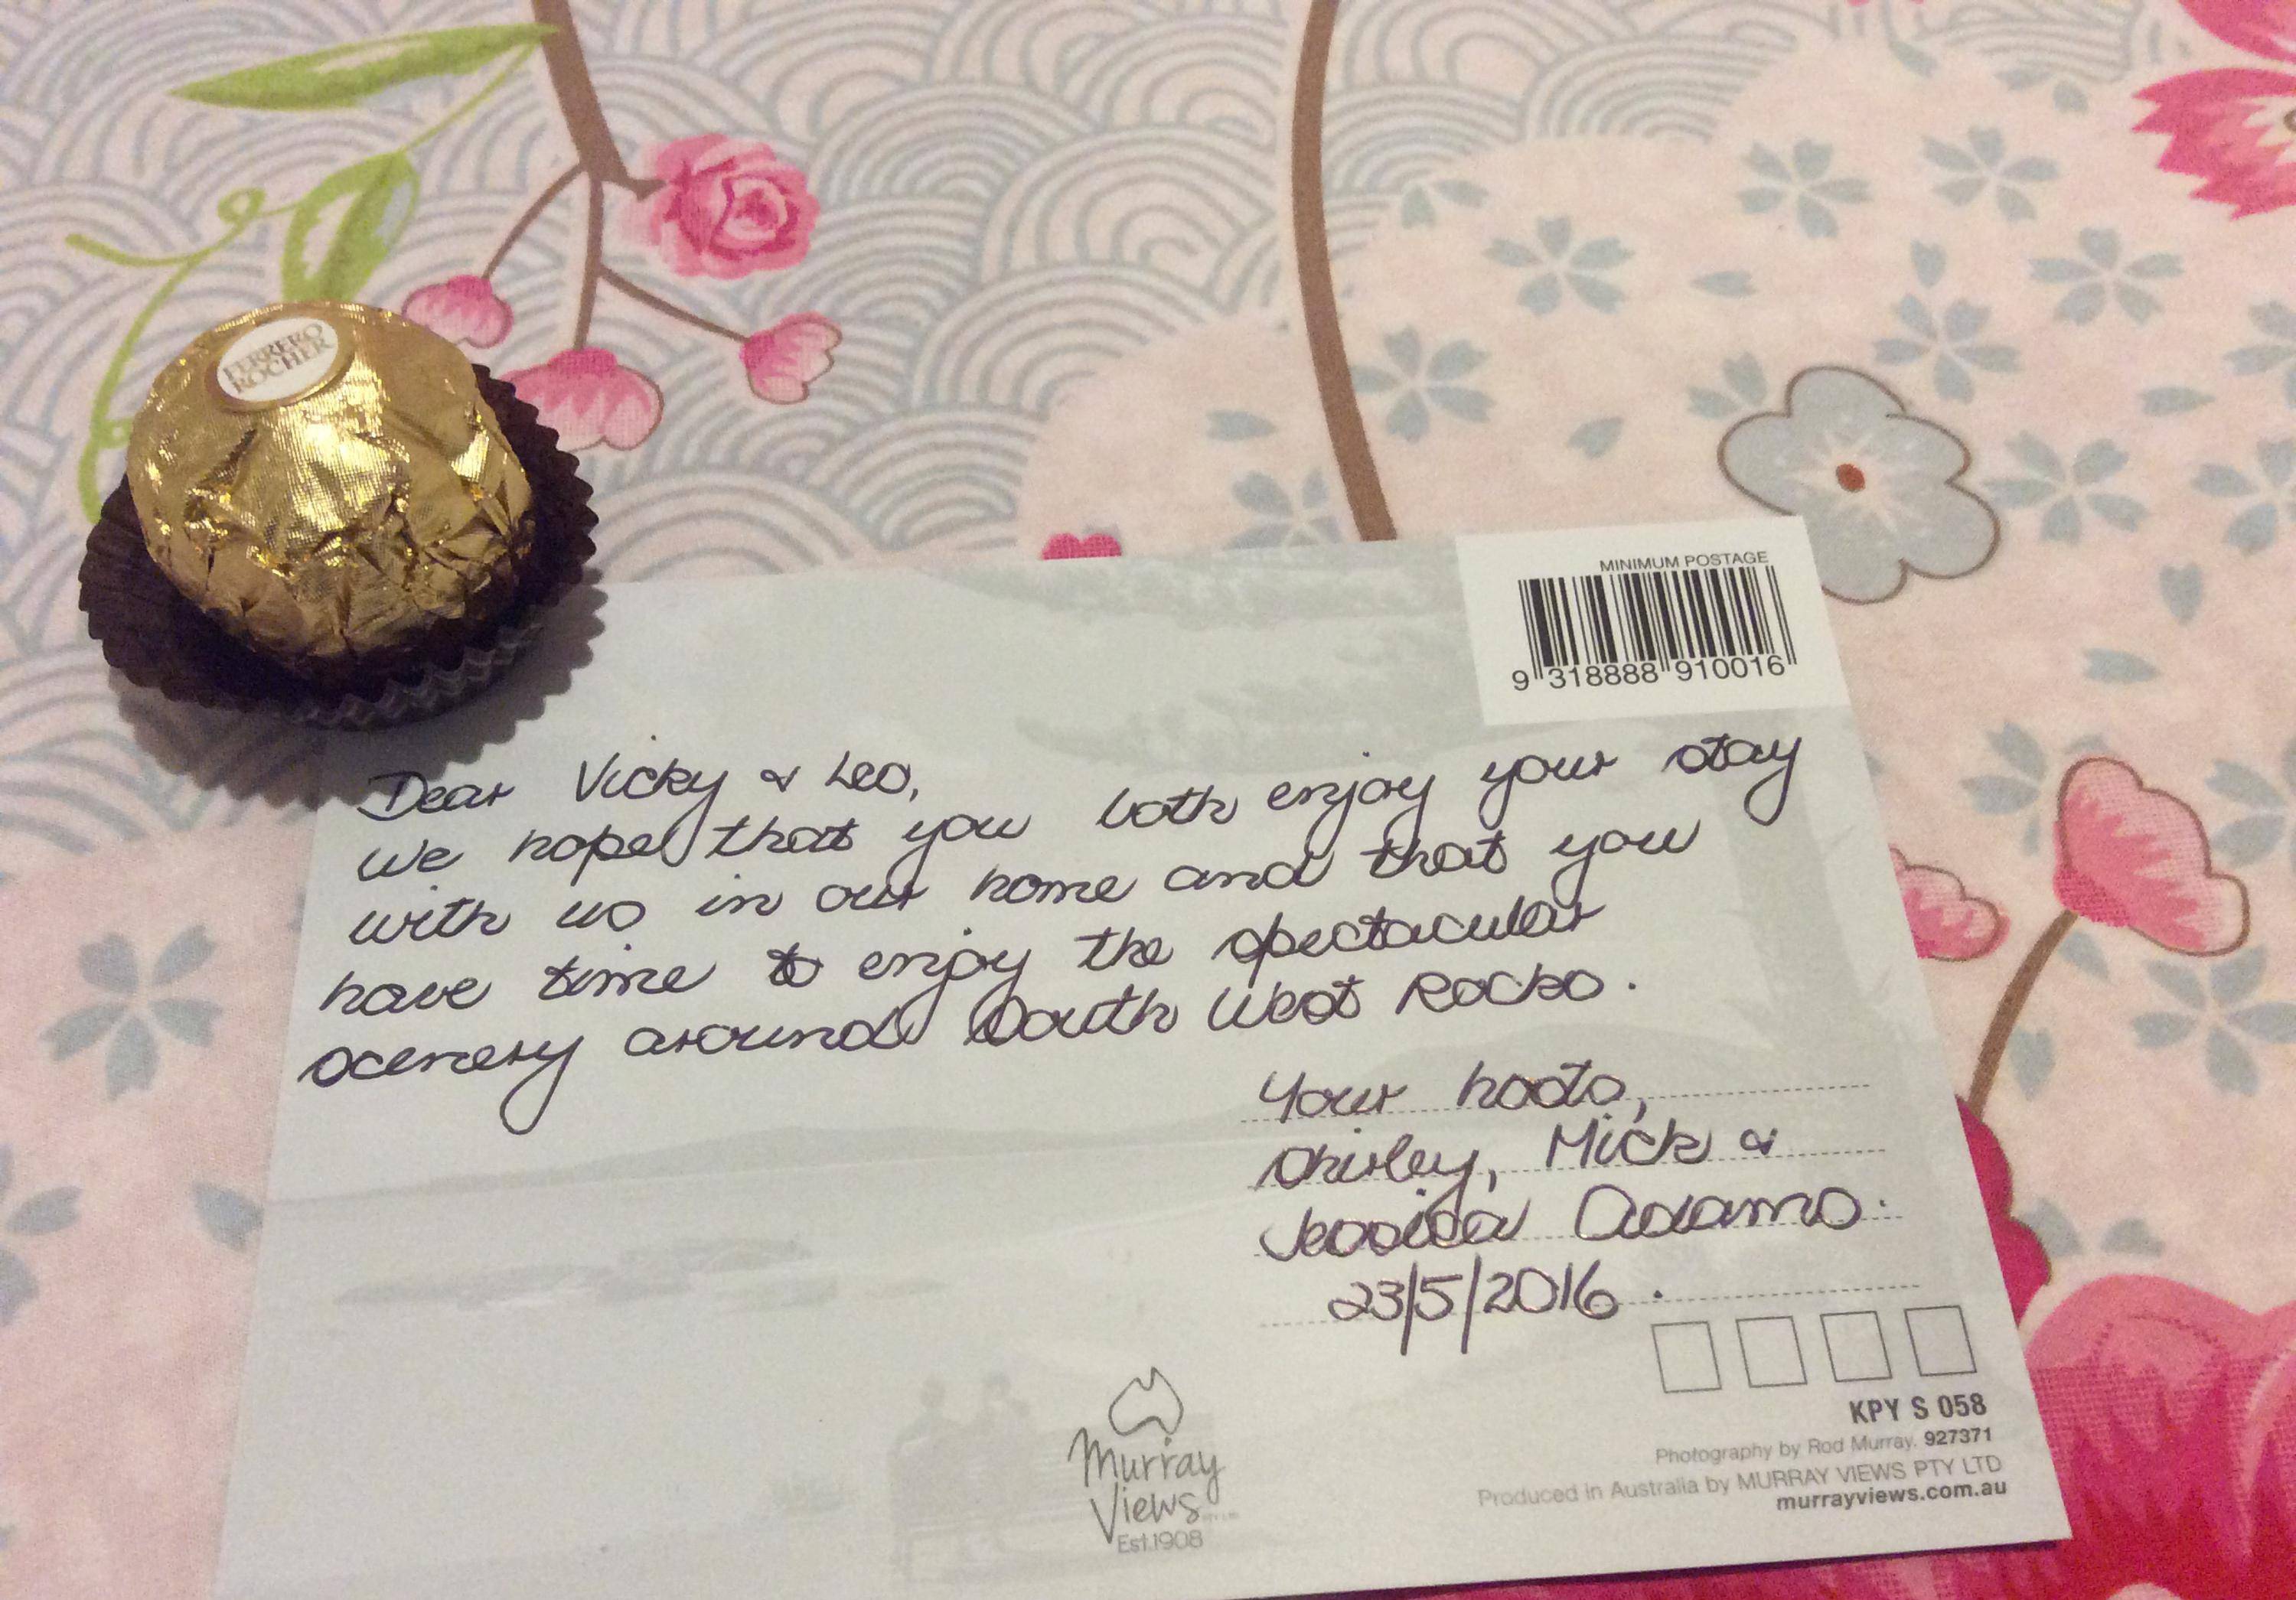 FERRERO
ROCHER
MINIMUM POSTAGE
9 318888 910016
Dear Vicky & Leo,
We hope that you both enjoy your stay
with us in our home and that you
have time to enjoy the spectacular
scenery around South West Rocks.
Your hosts,
Shirley, Mick &
Jessica Adams.
23/5/2016.
Murray
Views PTY LTD
Est.1908
KPY S 058
Photography by Rod Murray. 927371
Produced in Australia by MURRAY VIEWS PTY LTD
murrayviews.com.au